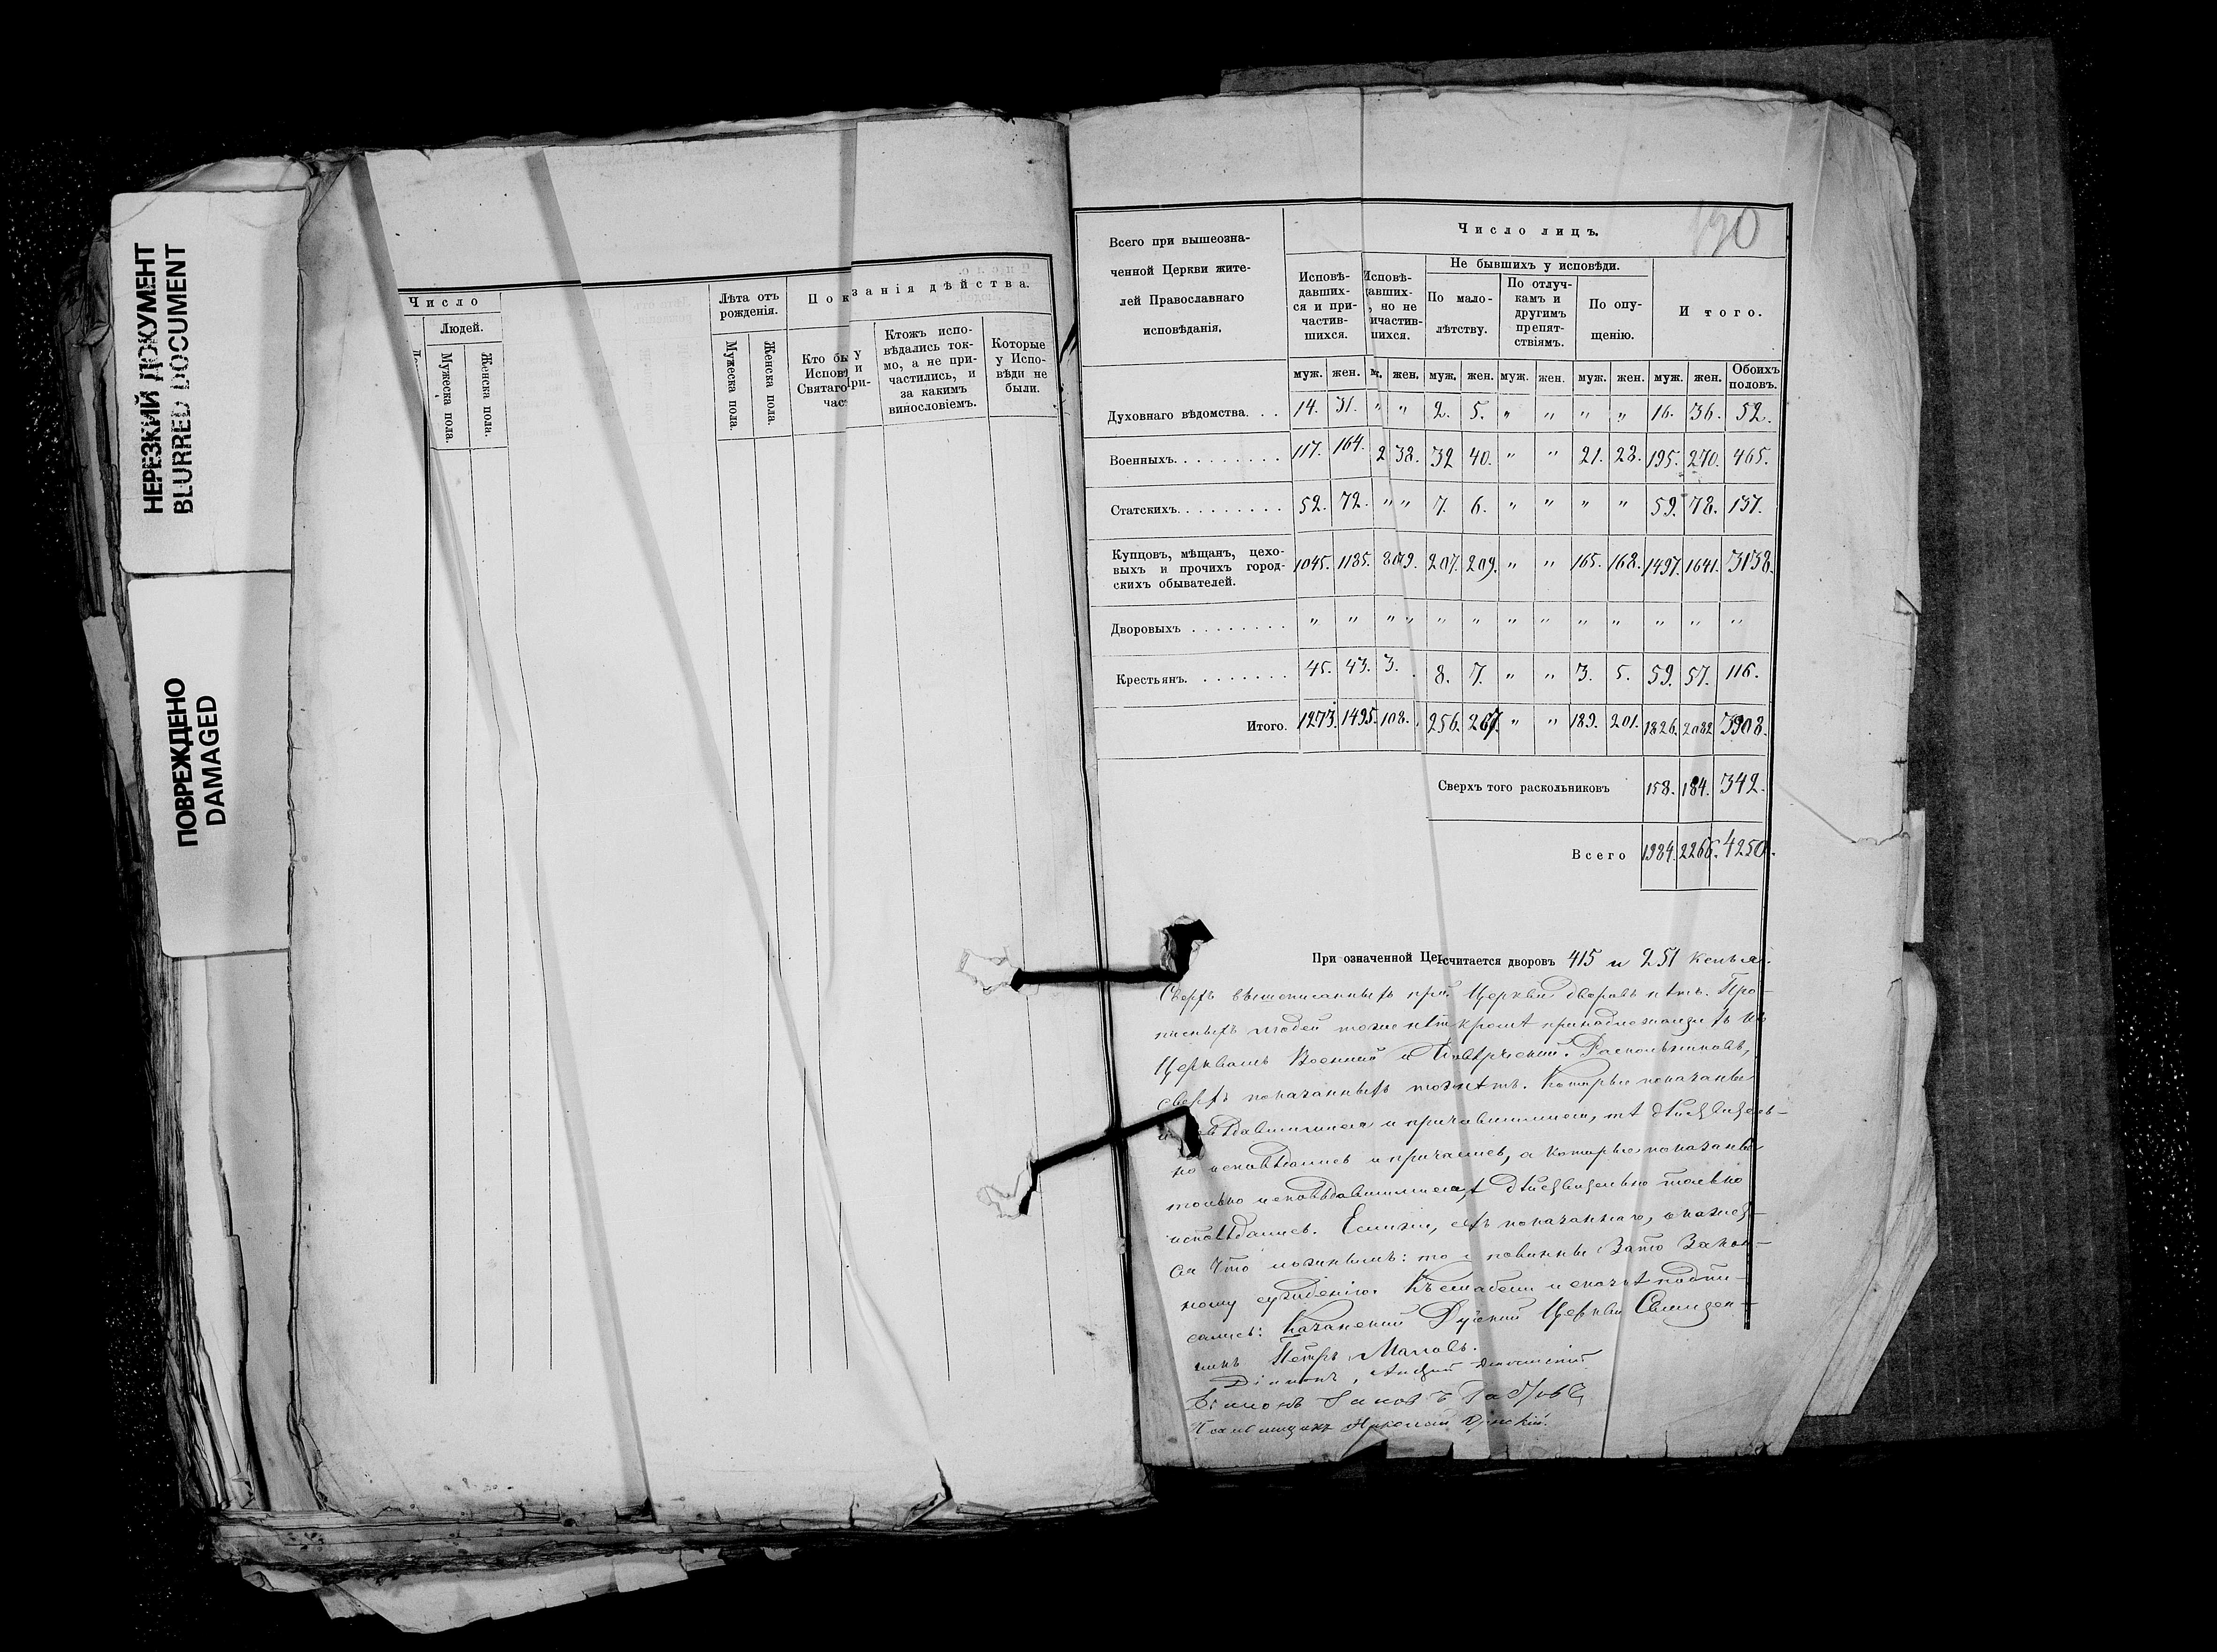 НЕРЕЗКИЙ ДОКУМЕНТ
BLURRED DOCUMENT
ПОВРЕЖДЕНО
DAMAGED
Число
Людей.
Мужеска пола.
Женска пола.
Лѣта отъ рожденія.
Мужеска пола.
Женска пола.
Показанія дѣйства.
Кто бы у
Исповѣ и
Святаго При-
час
Ктожъ испо-
вѣдались ток-
мо, а не при-
частились, и
за какимъ
винословіемъ.
Которые
у Испо-
вѣди не
были.
190
Всего при вышеозна-
ченной Церкви жите-
лей Православнаго
исповѣданія.
Число лицъ.
Исповѣ-
давших-
ся и при-
частив-
шихся.
Исповѣ-
давших-
, но не
ичастив-
шихся.
Не бывшихъ у исповѣди.
По мало-
лѣтству.
По отлуч-
камъ и
другимъ
препят-
ствіямъ.
По опу-
щенію.
Итого.
муж. жен. м. жен. муж. жен. муж. жен. муж. жен. муж. жен. Обоихъ половъ.
Духовнаго вѣдомства. . . 14. 31. " " 2. 5. " " " " 16. 36. 52.
Военныхъ. . . . . . . . . 117. 164. 2 38. 32 40. " " 21. 28. 195. 270. 465.
Статскихъ. . . . . . . . . 52. 72. " " 7. 6. " " " " 59. 78. 137.
Купцовъ, мѣщанъ, цехо-
выхъ и прочихъ город-
скихъ обывателей. 1045. 1185. 207. 209. " " 165. 168. 1497. 1641. 3138.
Дворовыхъ . . . . . . . . " " " " " " " " " " " " "
Крестьянъ. . . . . . . . 45. 43. 3. 8. 7. " " 3. 5. 59. 57. 116.
Итого. 1273. 1495. 108. 256. 267. " " 189. 201. 1826. 2082 3908.
Сверхъ того раскольниковъ 158. 184. 342.
Всего 1984. 2266. 4250.
При означенной Цер считается дворовъ 415 и 251
Сверхъ вышеписанныхъ при Церкви дворовъ нѣтъ. Про-
писныхъ людей тоже нѣт кромѣ принадлежащихъ къ
Церквамъ Военной и Раскольниковъ,
сверхъ показанныхъ тоже нѣтъ. Которые показаны
и причастившимися, тѣ дѣйствитель-
но исповѣдались и причащались, а которые показаны
только исповѣдавшимися дѣйствительно только
исповѣдались. Если показаннаго, окажет-
ся что ложнымъ: то повинны за то закон-
ному сужденію. Къ сей подпи-
сались: Казанской Церкви Священ-
никъ Петръ Маловъ.
Діаконъ
Діаконъ
Псаломщикъ Николай